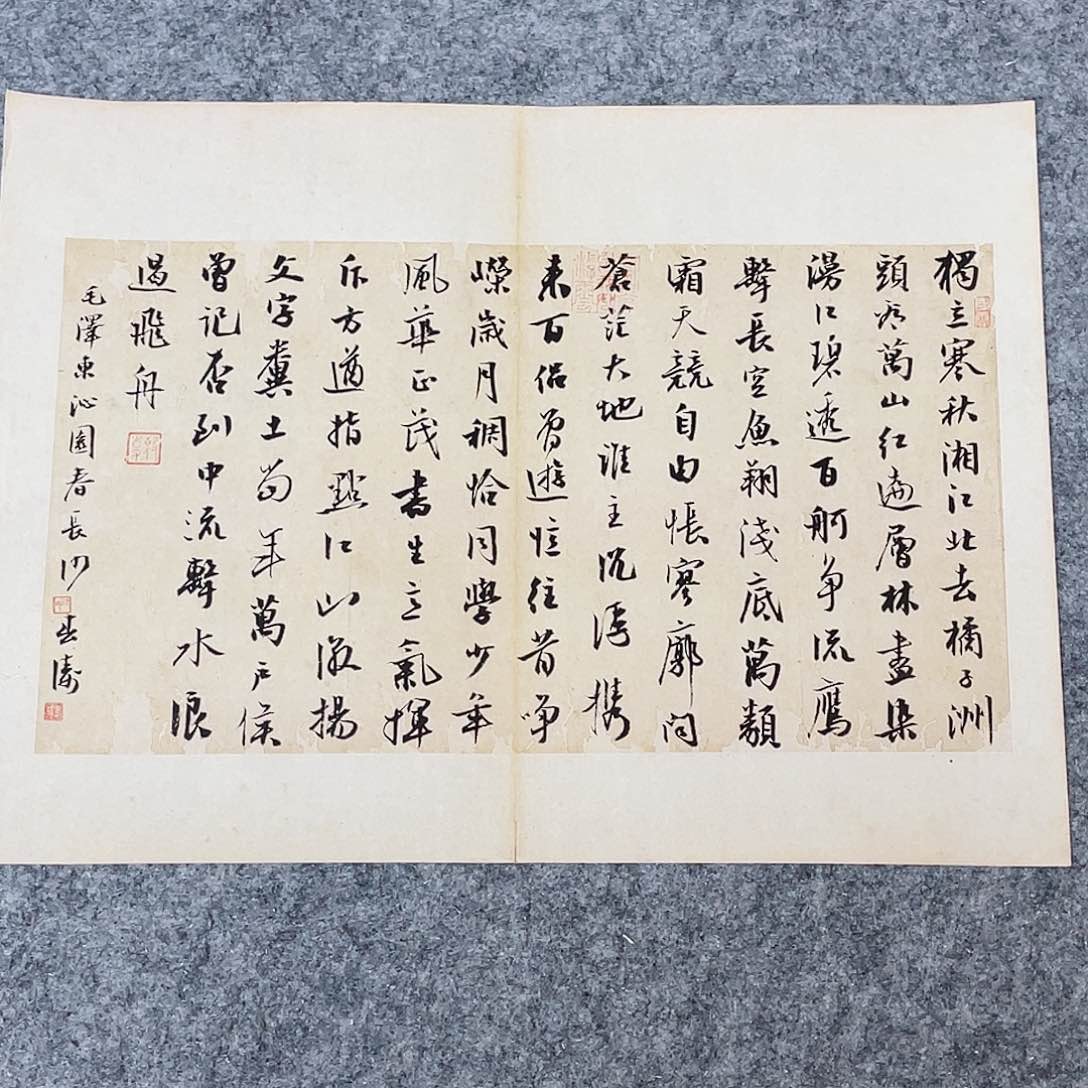 獨立寒秋湘江北去橘子洲
頭看萬山紅遍層林盡染
漫江碧透百舸争流鷹
擊長空魚翔淺底萬類
霜天競自由悵寥廓問
蒼茫大地誰主沉浮攜
來百侣曾遊憶往昔崢
嶸歲月稠恰同學少年
風華正茂書生意氣揮
斥方遒指點江山激揚
文字糞土當年萬户侯
曾記否到中流擊水浪
遏飛舟
毛澤東沁園春長沙